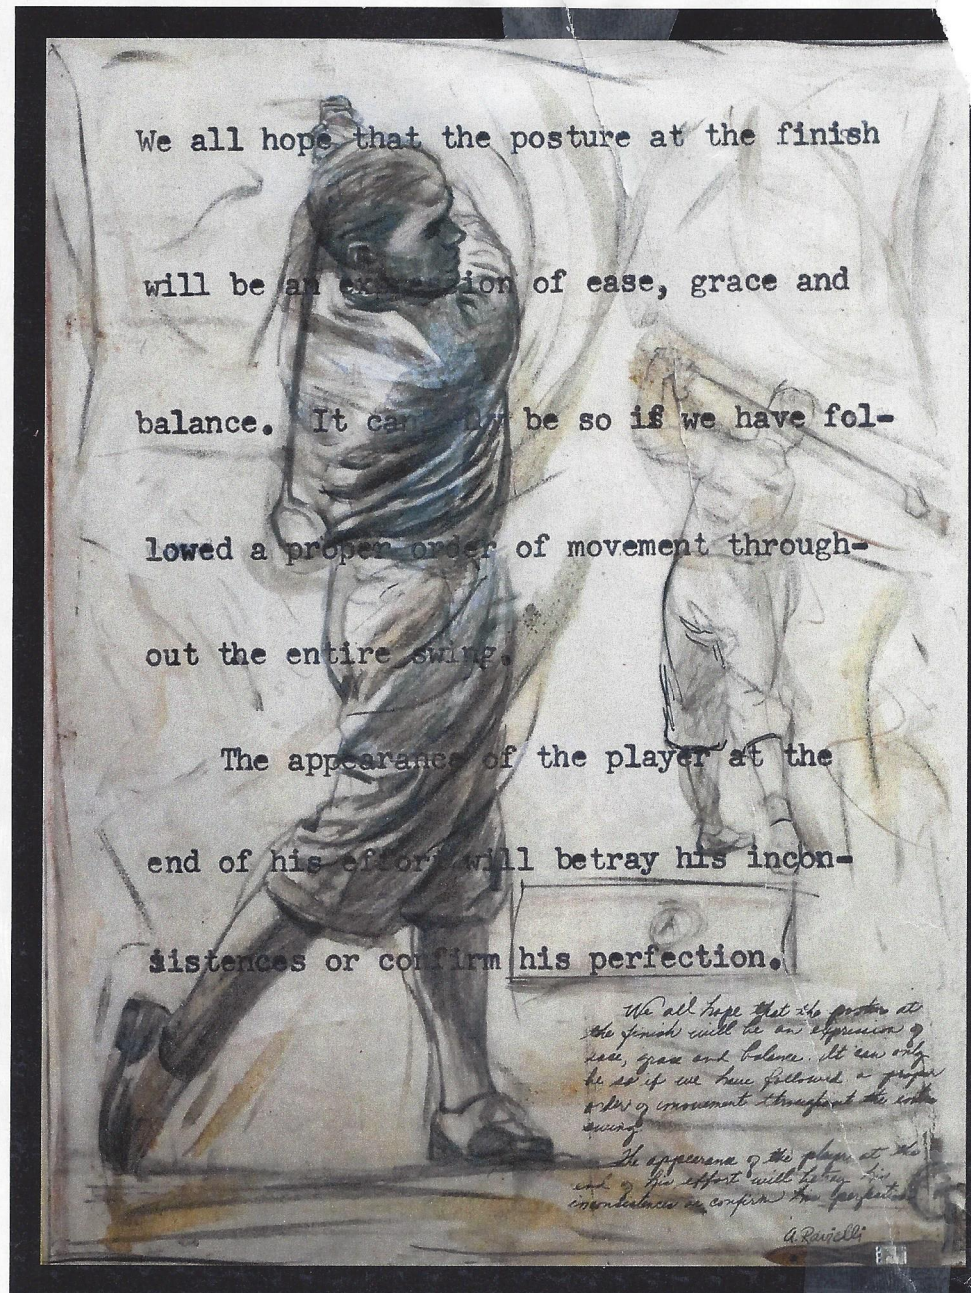 We all hope that the posture at the finish
will be an expression of ease, grace and
balance. It can only be so if we have fol-
lowed a proper order of movement through-
out the entire swing.
The appearance of the player at the
end of his effort will betray his incon-
sistences or confirm his perfection.
A
We all hope that the posture at
the finish will be an expression of
ease, grace and balance. It can only
be so if we have followed a proper
order of movement throughout the entire
swing.
The appearance of the player at the
end of his effort will betray his
inconsistences or confirm his perfection
A. Ravielli